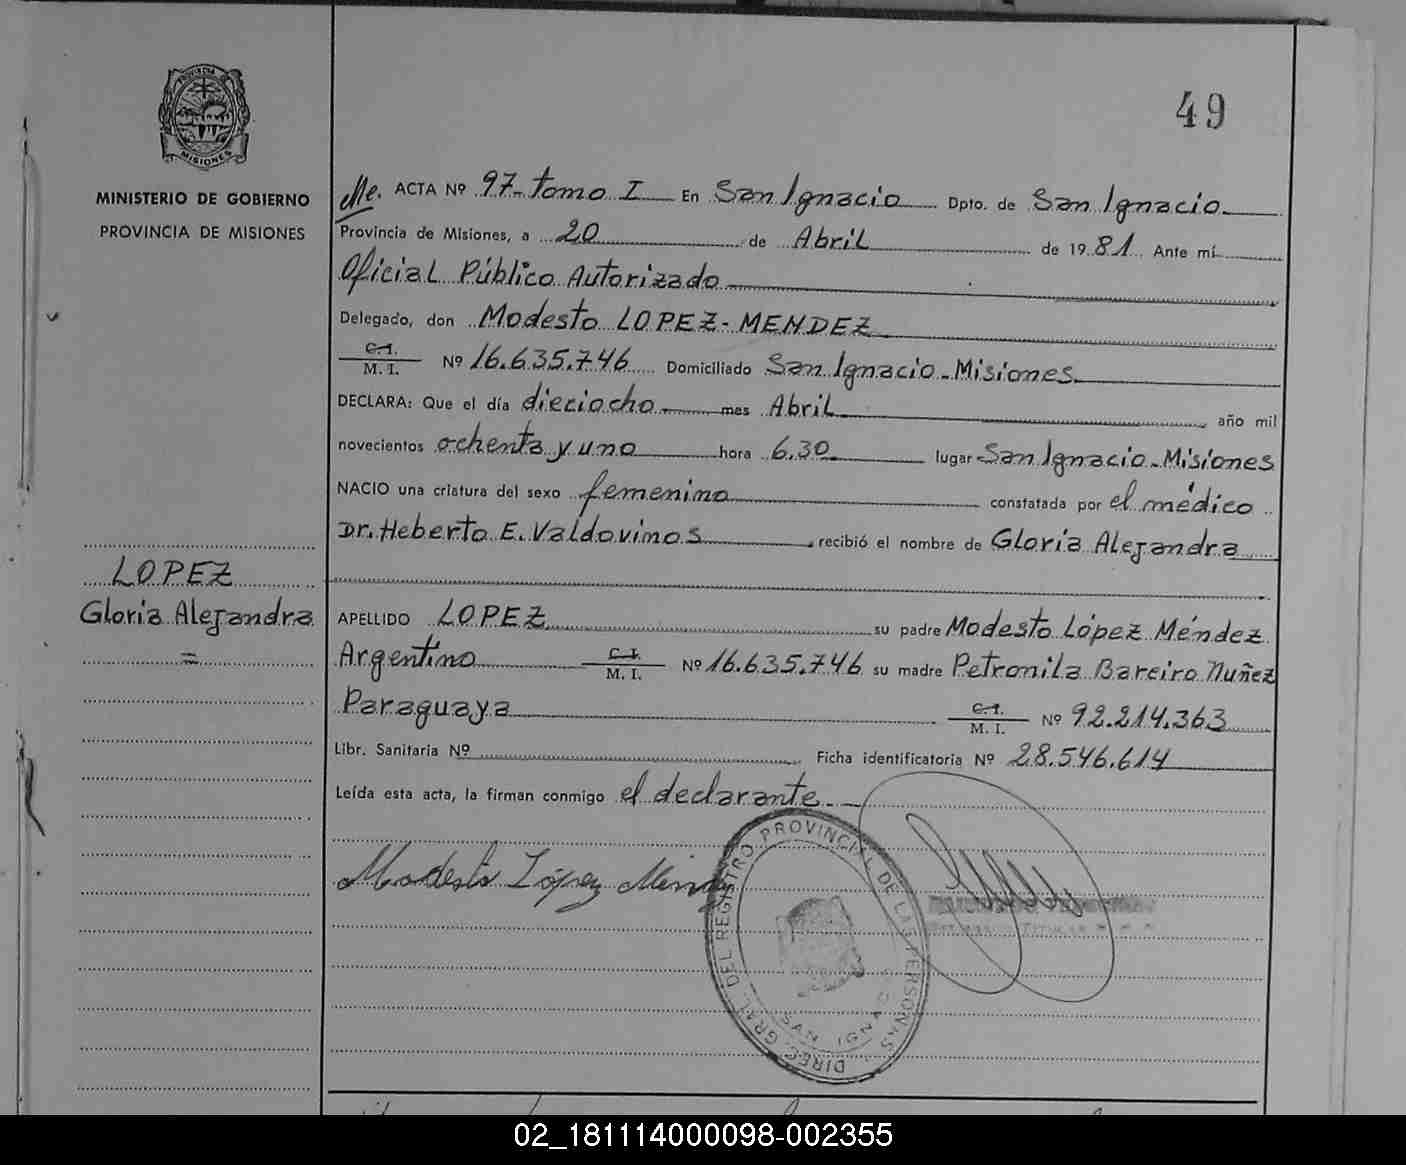 PROVINCIA DE
MISIONES
MINISTERIO DE GOBIERNO
PROVINCIA DE MISIONES
LOPEZ
Gloria Alejandra
=
49
Me. ACTA Nº 97- tomo I En San Ignacio Dpto. de San Ignacio
Provincia de Misiones, a 20 de Abril de 1981. Ante mí
Oficial Público Autorizado
Delegado, don Modesto LOPEZ- MENDEZ
C.I.
M. I. Nº 16.635.746 Domiciliado San Ignacio - Misiones
DECLARA: Que el día dieciocho mes Abril año mil
novecientos ochenta y uno hora 6.30 lugar San Ignacio - Misiones
NACIO una criatura del sexo femenino constatada por el médico
Dr. Heberto E. Valdovinos recibió el nombre de Gloria Alejandra
APELLIDO LOPEZ su padre Modesto López Méndez
Argentino C.I. M. I. Nº 16.635.746 su madre Petronila Bareiro Nuñez
Paraguaya C.I. M. I. Nº 92.214.363
Libr. Sanitaria Nº Ficha identificatoria Nº 28.546.614
Leída esta acta, la firman conmigo el declarante
Modesto López Mendez
DIREC. GRAL. DEL REGISTRO PROVINCIAL DE LAS PERSONAS
SAN IGNACIO
02_181114000098-002355